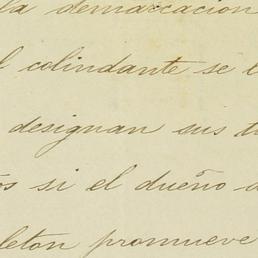 la demarcacion
l colindante se l
designan sus t
os si el dueño d
leton promueve